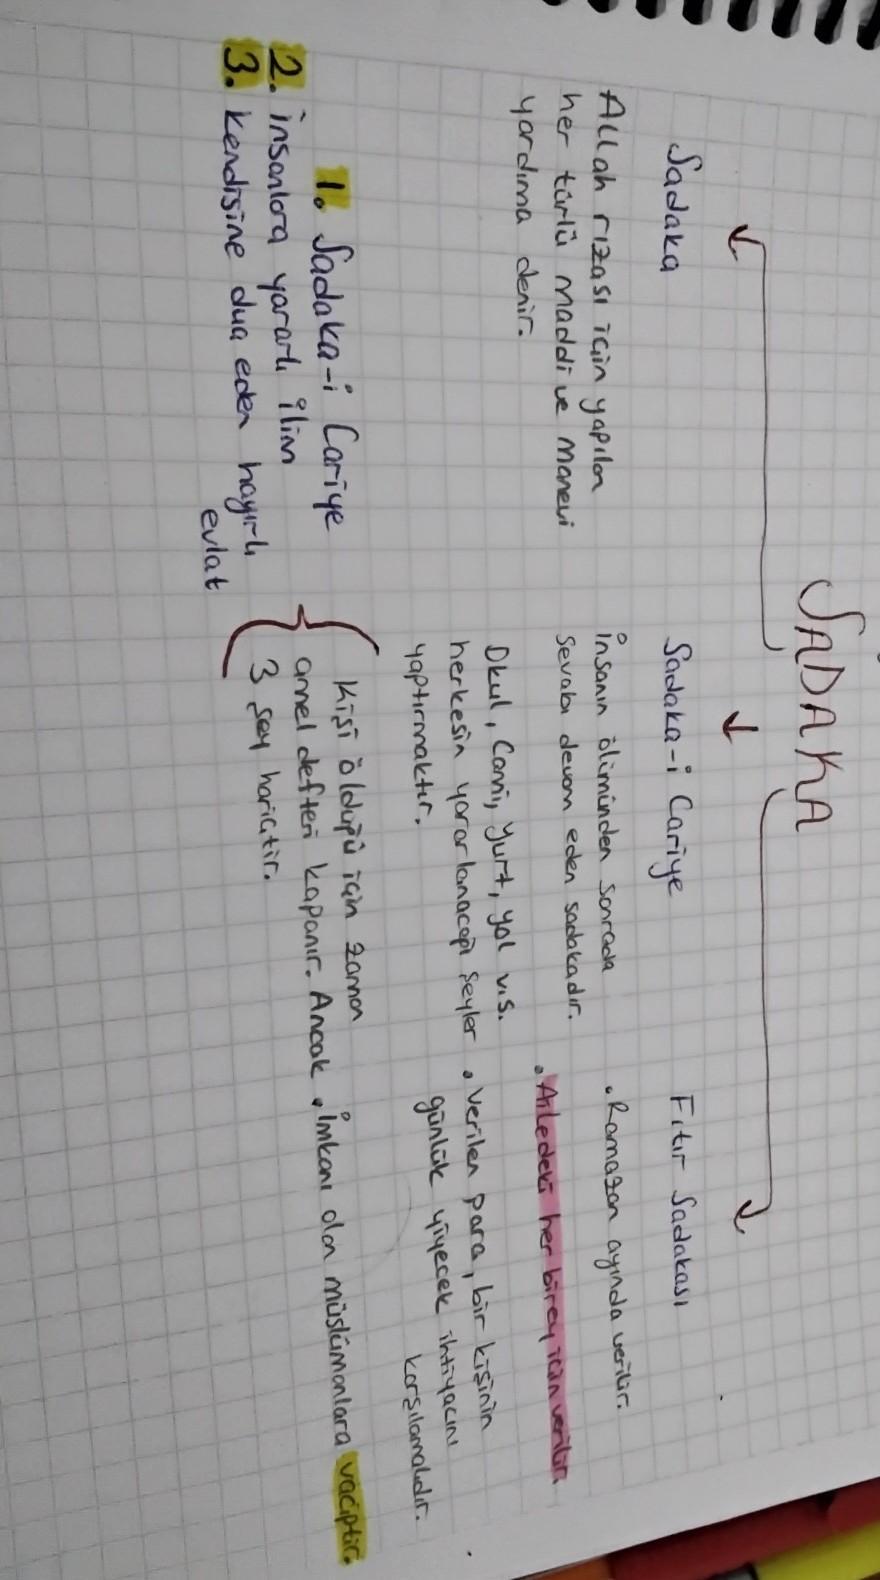 SADAKA
Sadaka
Allah rızası için yapılan
her türlü maddi ve manevi
yardıma denir.
Sadaka-i Cariye
İnsanın öliminden sonrada
sevabı devam eden sadakadır.
Okul, Cami, Yurt, yol v.s.
herkesin yararlanacağı şeyler
yaptırmaktır.
Kişi öldüğü için zaman
amel defteri kapanır. Ancak
3 şey hariçtir.
1. Sadaka-i Cariye
2. İnsanlara yararlı ilim
3. Kendisine dua eden hayırlı
evlat
Fıtır Sadakası
. Ramazan ayında verilir.
. Ailedeki her birey için verilir.
. Verilen para, bir kişinin
günlük yiyecek ihtiyacını
karşılamalıdır.
. İmkanı olan müslümanlara vaciptir.